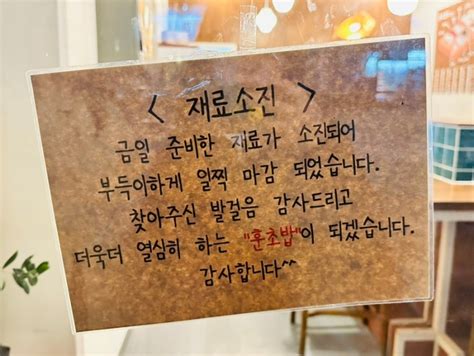 < 재료소진 >
금일 준비한 재료가 소진되어
부득이하게 일찍 마감 되었습니다.
찾아주신 발걸음 감사드리고
더욱더 열심히 하는 "훈초밥"이 되겠습니다.
감사합니다^^